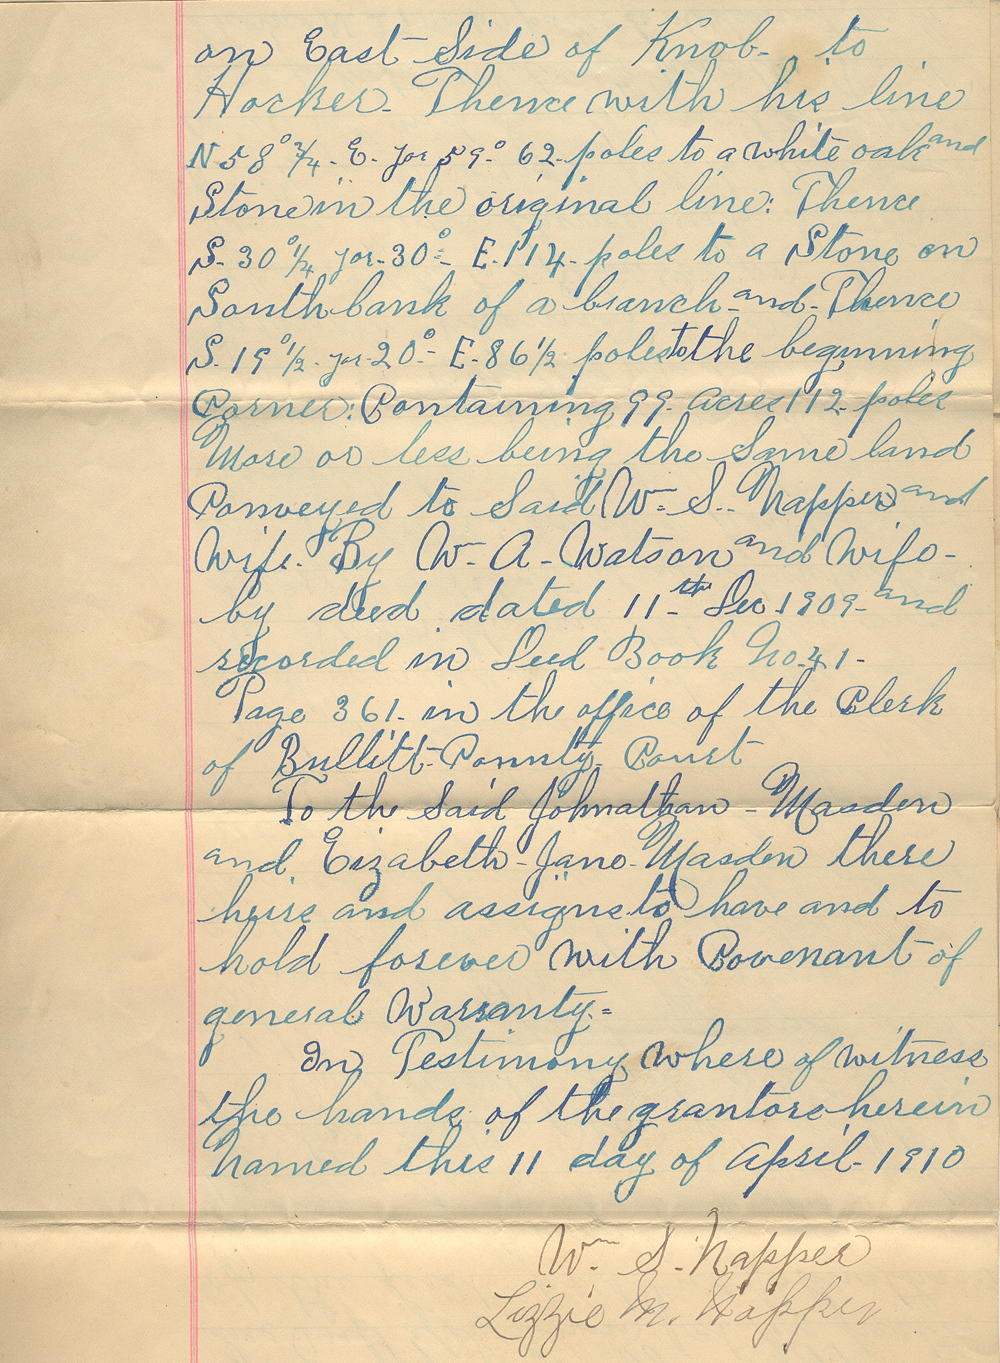 on East Side of Knob- to
Hocker- Thence with his line
N 58° 3/4- E. for 59.° 62- poles to a white oak and
Stone in the original line: Thence
S. 30° 1/4 for- 30°- E- 114- poles to a Stone on
South bank of a branch- and- Thence
S. 19° 1/2- for- 20°- E- 86 1/2 poles to the beginning
Corner: Containing 99- acres 112- poles
More or less being the Same land
Conveyed to Said Wm S. Napper and
Wife. By W- A- Watson and Wife-
by deed dated 11-th Dec 1909- and
recorded in Deed Book No. 41-
Page 361- in the office of the Clerk
of Bullitt- County- Court
To the Said Johnathan- Masden
and Eizabeth- Jane- Masden there
heirs and assigns to have and to
hold forever with Covenant of
general Warranty-
In Testimony where of witness
the hands of the grantors herein
Named this 11 day of April- 1910
Wm S. Napper
Lizzie M. Napper